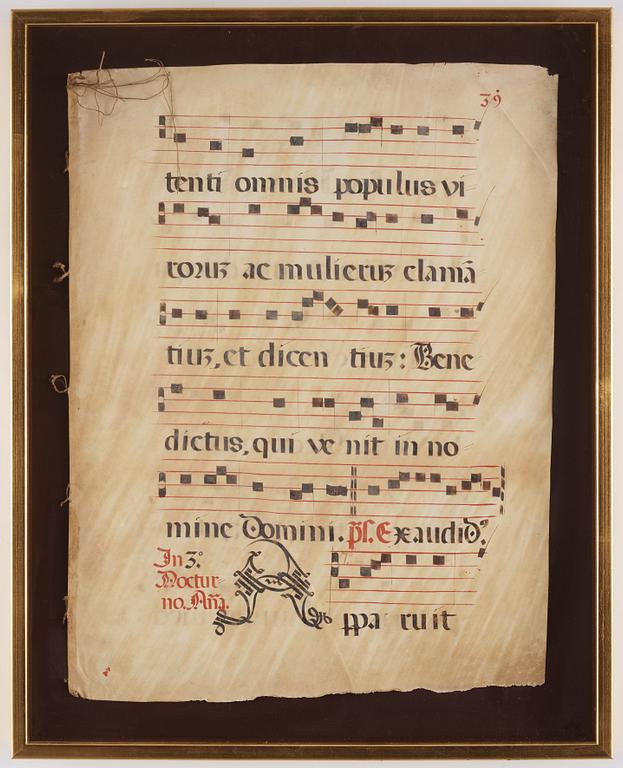 39
tenti omnis populus vi
roruʒ ac mulieruʒ clamā
tiuʒ, et dicen tiuʒ: Bene
dictus, qui ve nit in no
mine Domini. ps. Exaudiđ.
In 3.º
Noctur
no. Aña.
A ppa ruit